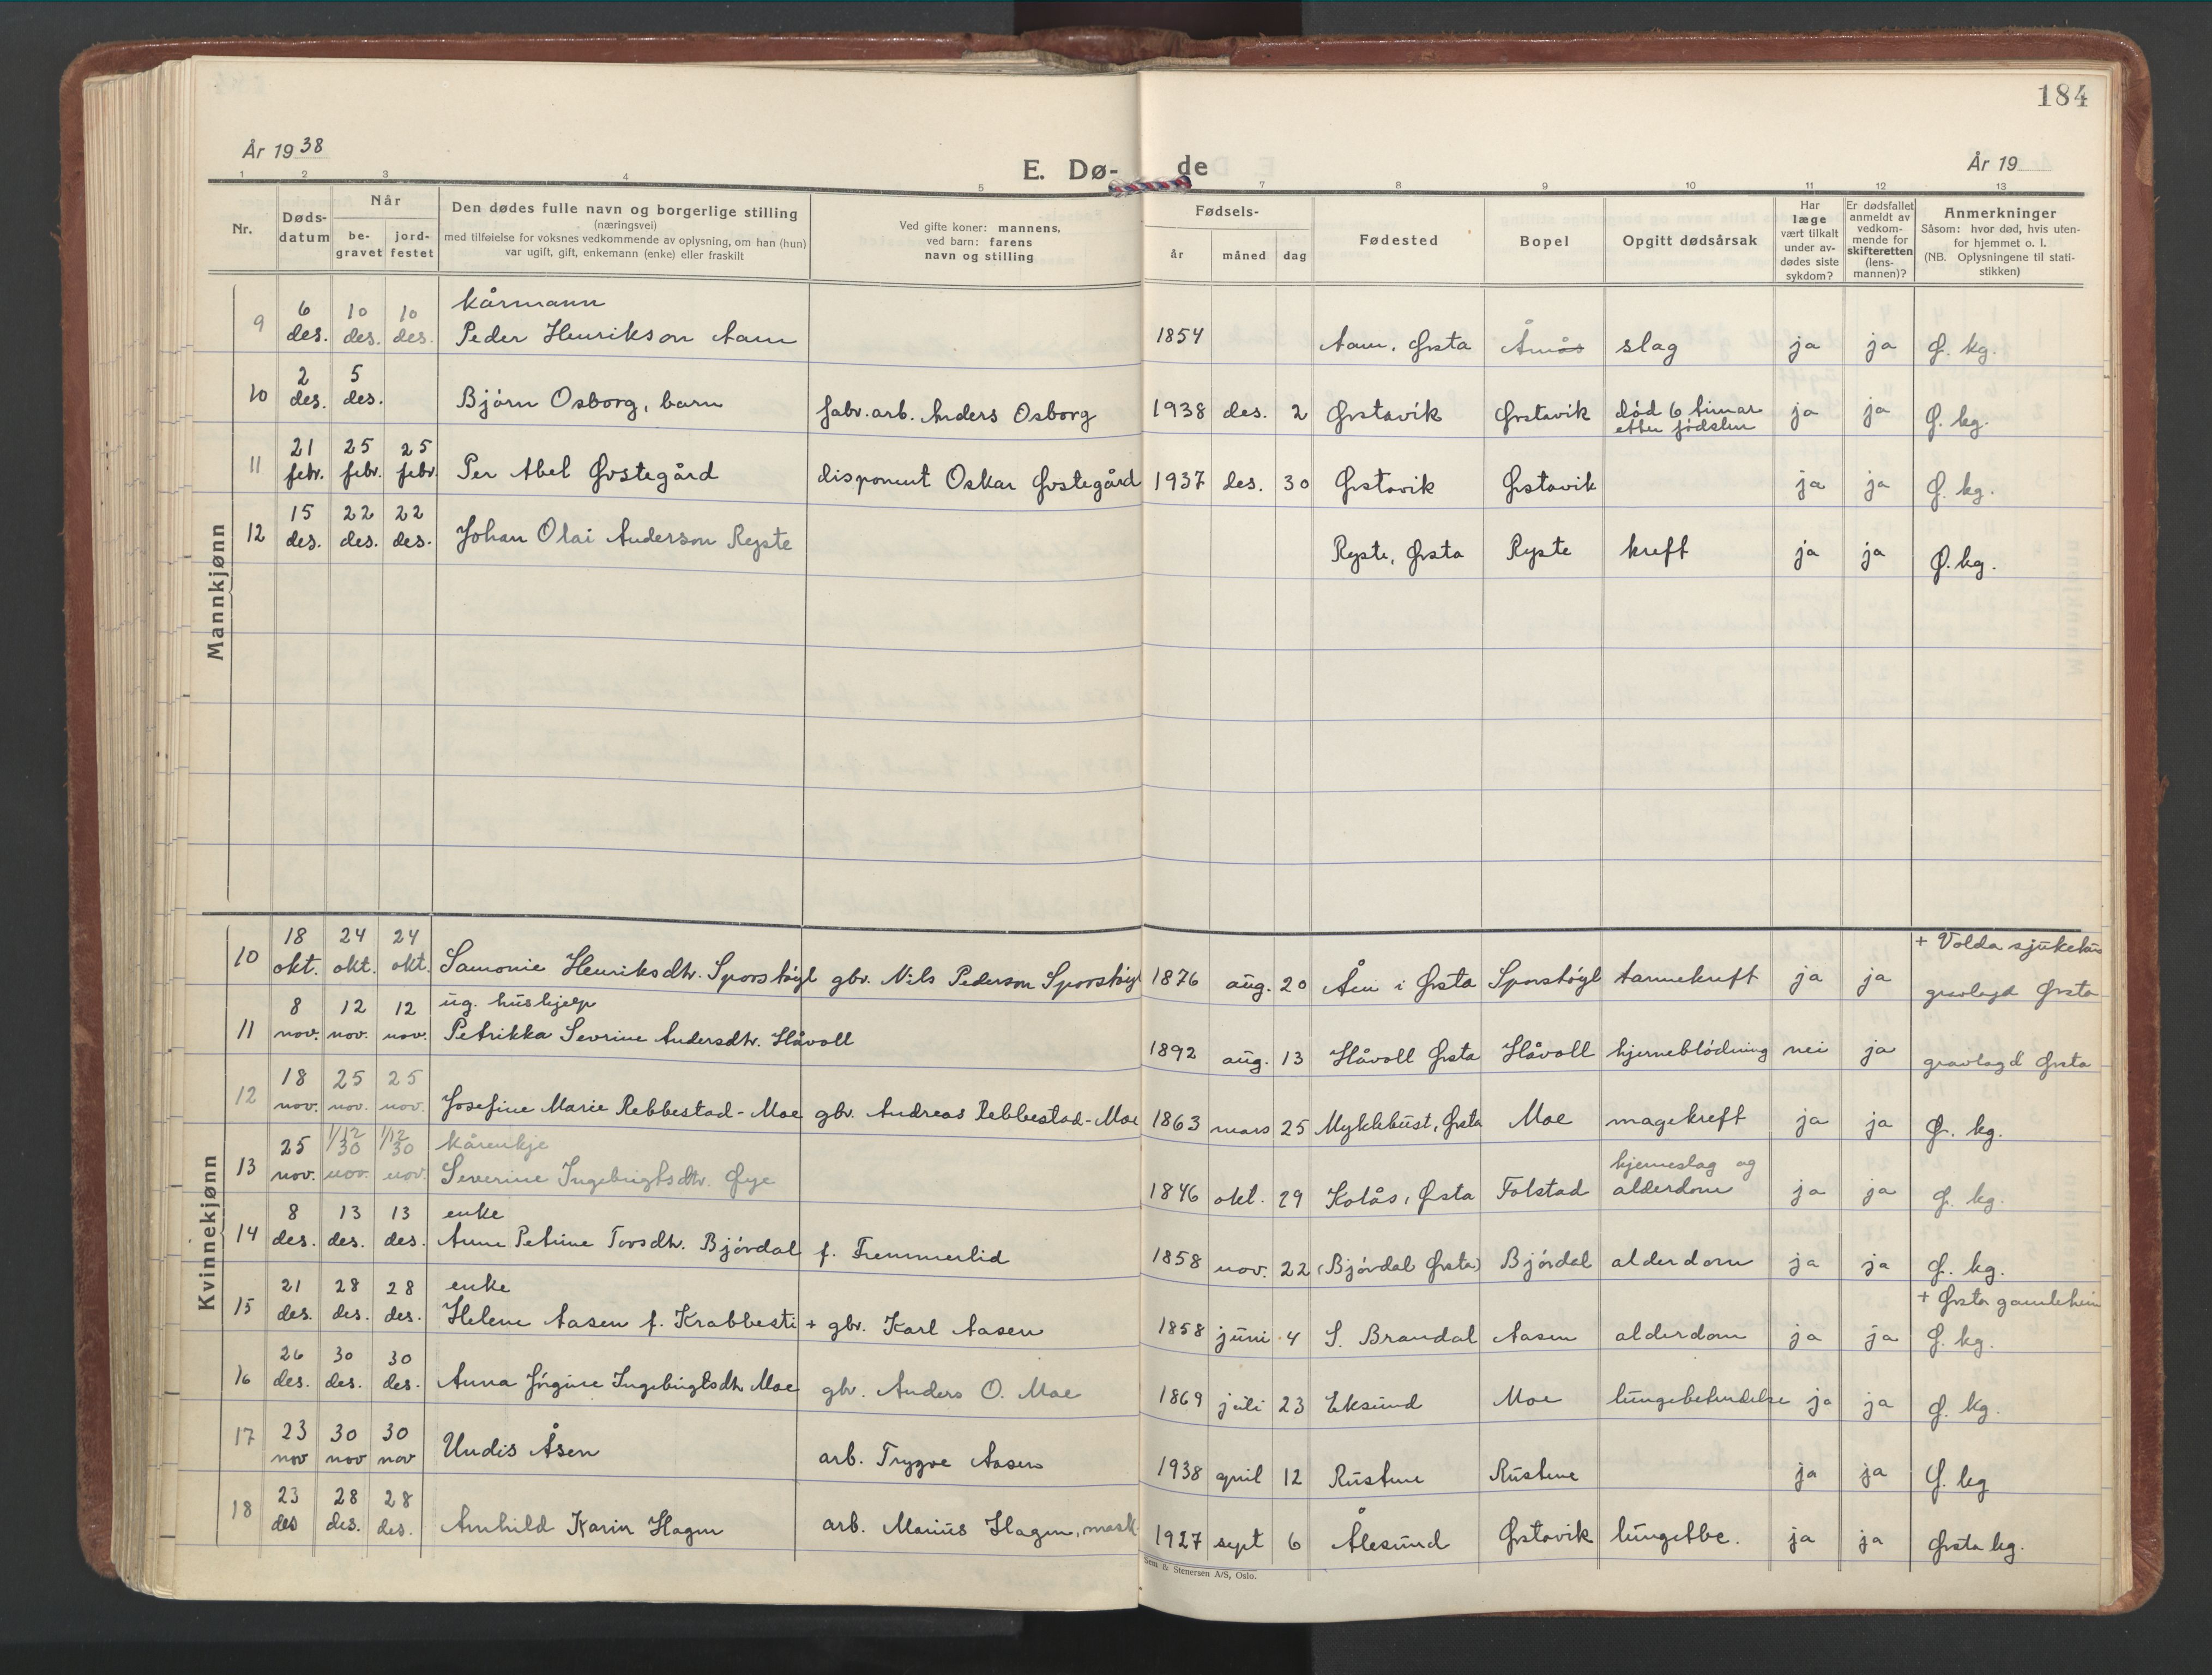 184
År 1938
E. Dø- de
År 19
1 2 3 4 5 7 8 9 10 11 12 13
Nr.
Døds-
datum
Når
be-
gravet
jord-
festet
Den dødes fulle navn og borgerlige stilling
(næringsvei)
med tilføielse for voksnes vedkommende av oplysning, om han (hun)
var ugift, gift, enkemann (enke) eller fraskilt
Ved gifte koner: mannens,
ved barn: farens
navn og stilling
Fødsels-
år måned dag
Fødested
Bopel
Opgitt dødsårsak
Har
læge
vært tilkalt
under av-
dødes siste
sykdom?
Er dødsfallet
anmeldt av
vedkom-
mende for
skifteretten
(lens-
mannen)?
Anmerkninger
Såsom: hvor død, hvis uten-
for hjemmet o. l.
(NB. Oplysningene til stati-
stikken)
Mannkjønn
kårmann
9 6 des. 10 des. 10 des. Peder Henrikson Aam 1854 Aam, Ørsta Åmås slag ja ja Ø. kg.
10 2 des. 5 des. Bjørn Osborg, barn fabr.arb. Anders Osborg 1938 des. 2 Ørstavik Ørstavik død 6 timar etter fødslen ja ja Ø. kg.
11 21 febr. 25 febr. 25 febr. Per Abel Øvstegård disponent Oskar Øvstegård 1937 des. 30 Ørstavik Ørstavik ja ja Ø. kg.
12 15 des. 22 des. 22 des. Johan Olai Anderson Ryste Ryste, Ørsta Ryste kreft ja ja Ø. kg.
Kvinnekjønn
+ Volda sjukehus
10 18 okt. 24 okt. 24 okt. Samonie Henriksdtr. Sporstøyl gbr. Nils Pederson Sporstøyl 1876 aug. 20 Åm i Ørsta Sporstøyl tarmekreft ja ja gravlagd Ørsta
ug. hushjelp
11 8 nov. 12 nov. 12 nov. Petrikka Sevrine Andersdtr. Håvoll 1892 aug. 13 Håvoll Ørsta Håvoll hjerneblødning nei ja gravlagd Ørsta
12 18 nov. 25 nov. 25 nov. Josefine Marie Rebbestad-Moe gbr. Andreas Rebbestad-Moe 1863 mars 25 Myklebust, Ørsta Moe magekreft ja ja Ø. kg.
1/12 1/12 kårenkje
13 25 nov. 30 nov. 30 nov. Severine Ingebrigtsdtr. Øye 1846 okt. 29 Kolås, Ørsta Folstad hjerneslag og alderdom ja ja Ø. kg.
enke
14 8 des. 13 des. 13 des. Anne Petrine Torsdtr. Bjørdal f. Fremmerlid 1858 nov. 22 (Bjørdal Ørsta) Bjørdal alderdom ja ja Ø. kg.
enke + Ørsta gamleheim
15 21 des. 28 des. 28 des. Helene Aasen f. Krabbesti + gbr. Karl Aasen 1858 juni 4 S. Brandal Aasen alderdom ja ja Ø. kg.
16 26 des. 30 des. 30 des. Anna Jørgine Ingebrigtsdtr Moe gbr. Anders O. Moe 1869 juli 23 Eksund Moe lungebetendelse ja ja Ø. kg.
17 23 nov 30 nov 30 nov Undis Åsen arb. Trygve Aasen 1938 april 12 Rustene Rustene ja ja Ø. kg
18 23 des 28 des. 28 des. Arnhild Karin Hagen arb. Marius Hagen, mask 1927 sept 6 Ålesund Ørstavik lungetbc. ja ja Ørsta kg.
Sem & Stenersen A/S, Oslo.